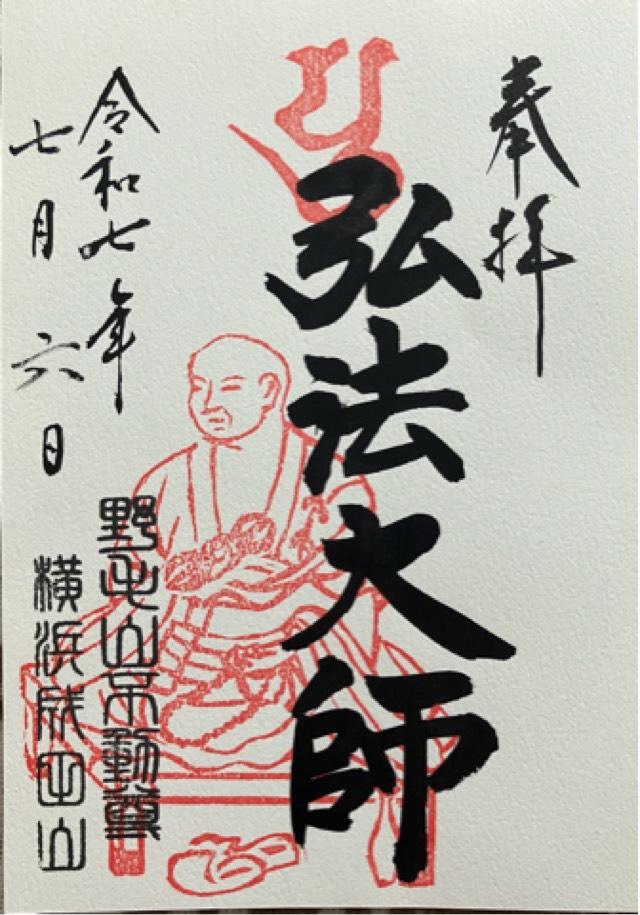 奉拝
弘法大師
令和七年
七月六日
野毛山不動尊
横浜成田山